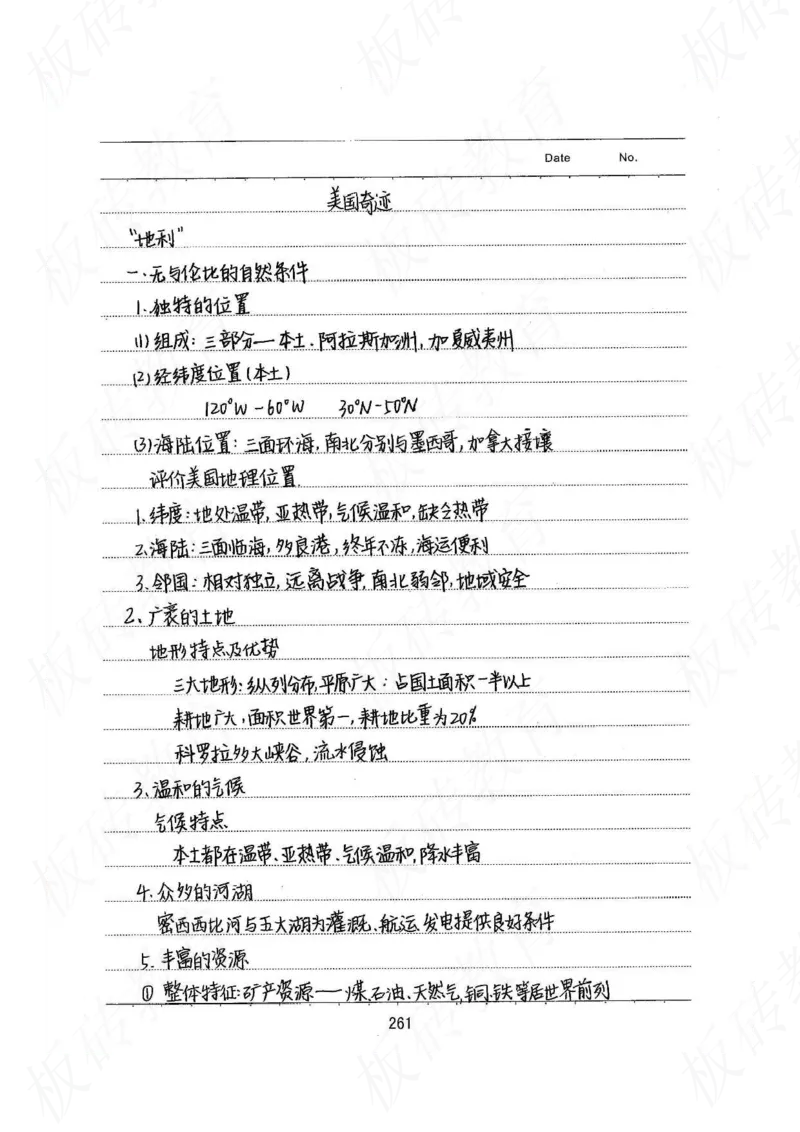 Date No.
美国奇迹
"地利"
一、无与伦比的自然条件
1.独特的位置
(1)组成：三部分—本土．阿拉斯加州，加夏威夷州
(2)经纬度位置(本土)
120°W-60°W 30°N-50°N
(3)海陆位置：三面环海，南北分别与墨西哥，加拿大接壤
评价美国地理位置．
1.纬度：地处温带，亚热带，气候温和，缺乏热带
2.海陆：三面临海，多良港，终年不冻，海运便利
3.邻国：相对独立，远离战争，南北弱邻，地域安全
2、广袤的土地
地形特点及优势
三大地形：纵列分布，平原广大：占国土面积一半以上
耕地广大，面积世界第一，耕地比重为20%
科罗拉多大峡谷，流水侵蚀
3、温和的气候
气候特点
本土都在温带、亚热带、气候温和，降水丰富
4.众多的河湖
密西西比河与五大湖为灌溉、航运、发电提供良好条件
5.丰富的资源
① 整体特征：矿产资源——煤、石油、天然气，铜、铁等居世界前列
261
板砖教育